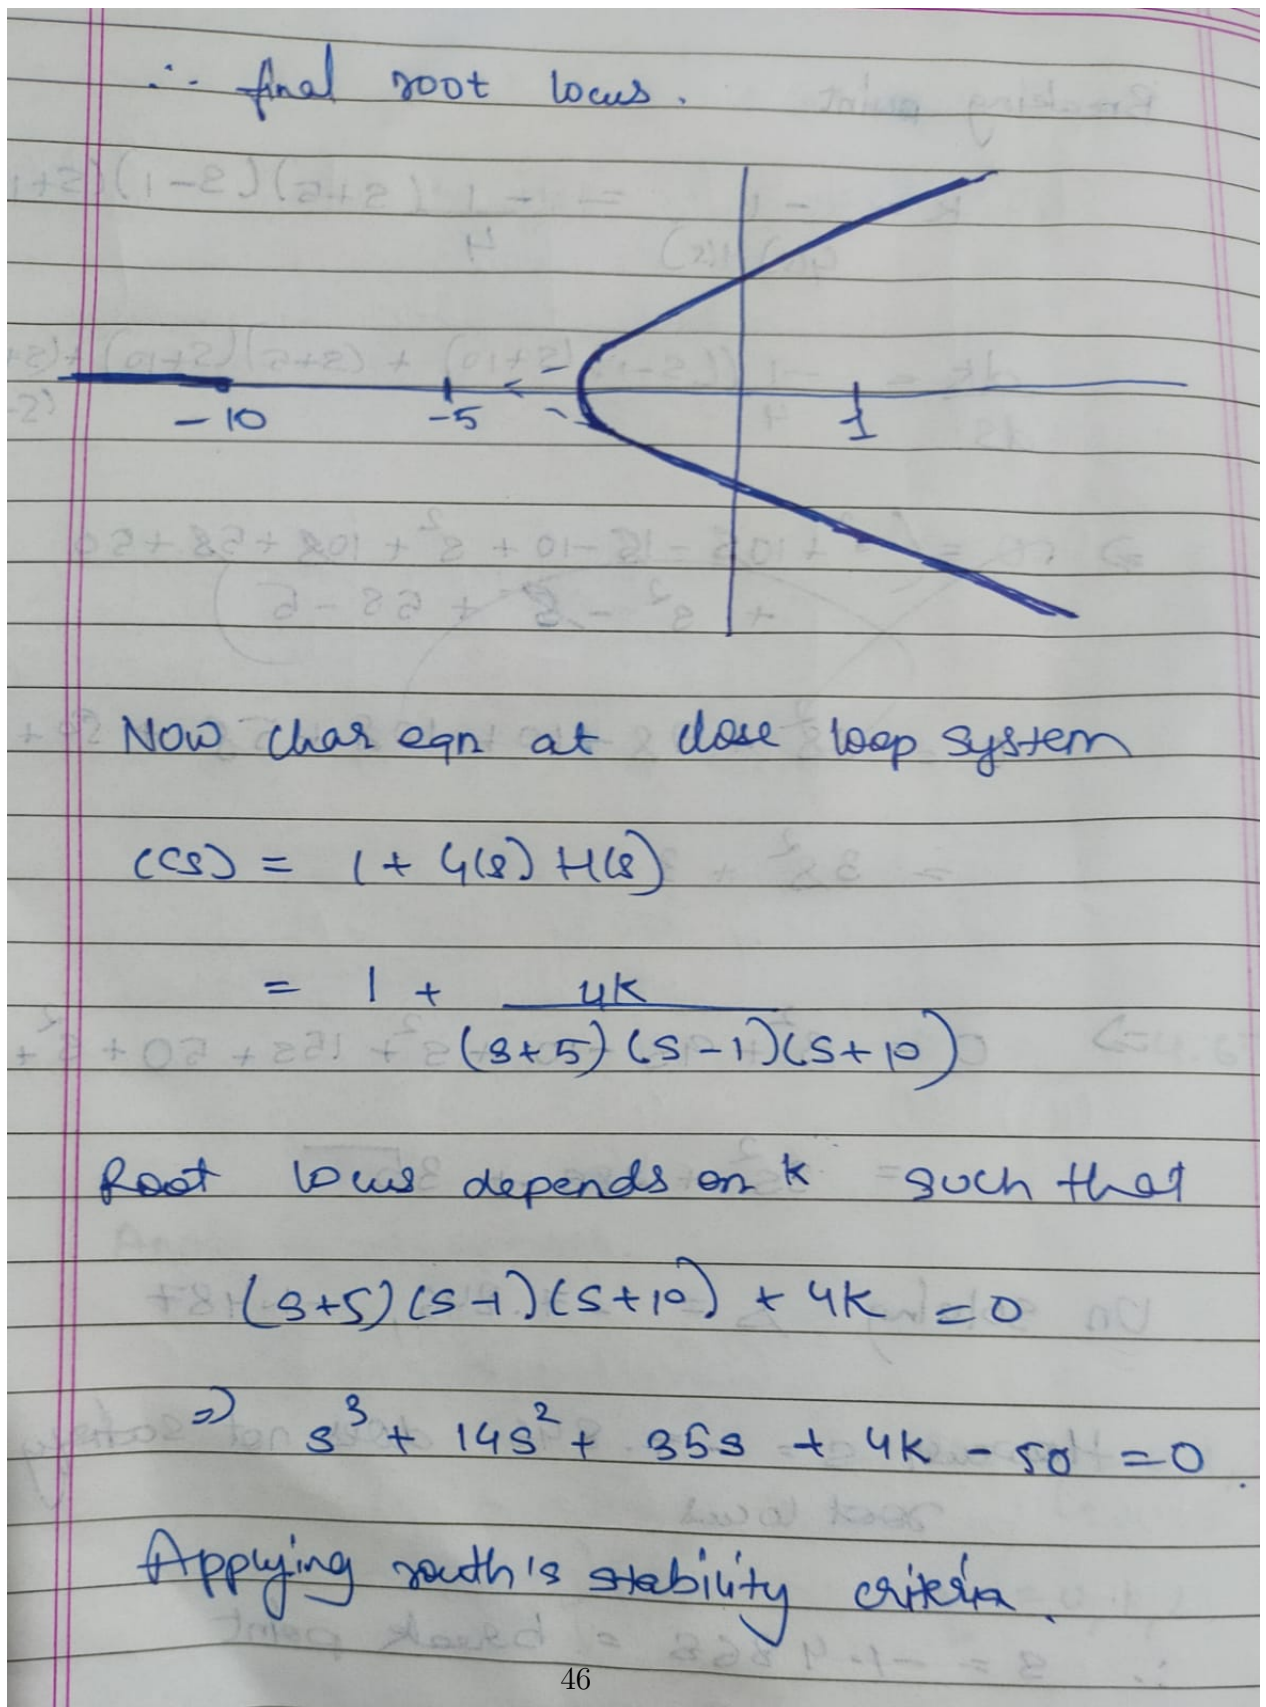 ∴ final root locus.
-10 -5 1
Now char eqn at close loop system
C(s) = 1 + G(s) H(s)
= 1 + 4K / (s+5)(s-1)(s+10)
Root locus depends on k such that
(s+5)(s-1)(s+10) + 4K = 0
⇒ s³ + 14s² + 35s + 4K - 50 = 0.
Applying routh's stability criteria.
46